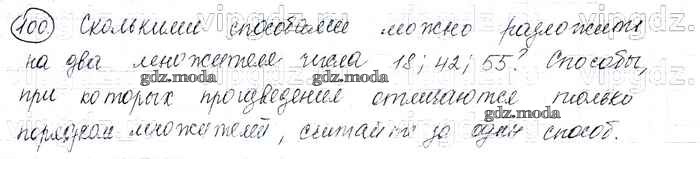 100. Сколькими способами можно разложить
на два множителя числа 18; 42; 55? Способы,
gdz.moda gdz.moda
при которых произведения отличаются только
порядком множителей, считайте за один способ.
gdz.moda gdz.moda